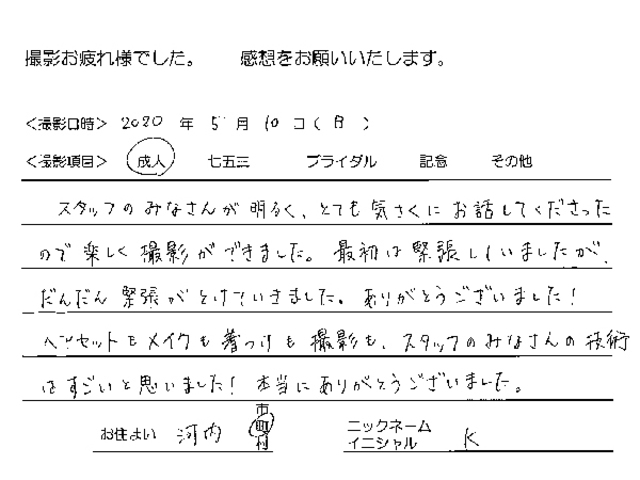 撮影お疲れ様でした。 感想をお願いいたします。
<撮影日時> 2020 年 5 月 10 日 ( 日 )
<撮影項目> 成人 七五三 ブライダル 記念 その他
スタッフのみなさんが明るく、とても気さくにお話してくださった
ので楽しく撮影ができました。最初は緊張していましたが、
だんだん緊張がとけていきました。ありがとうございました!
ヘアセットもメイクも着つけも撮影も、スタッフのみなさんの技術
はすごいと思いました! 本当にありがとうございました。
お住まい 河内 市町村 ニックネーム イニシャル K